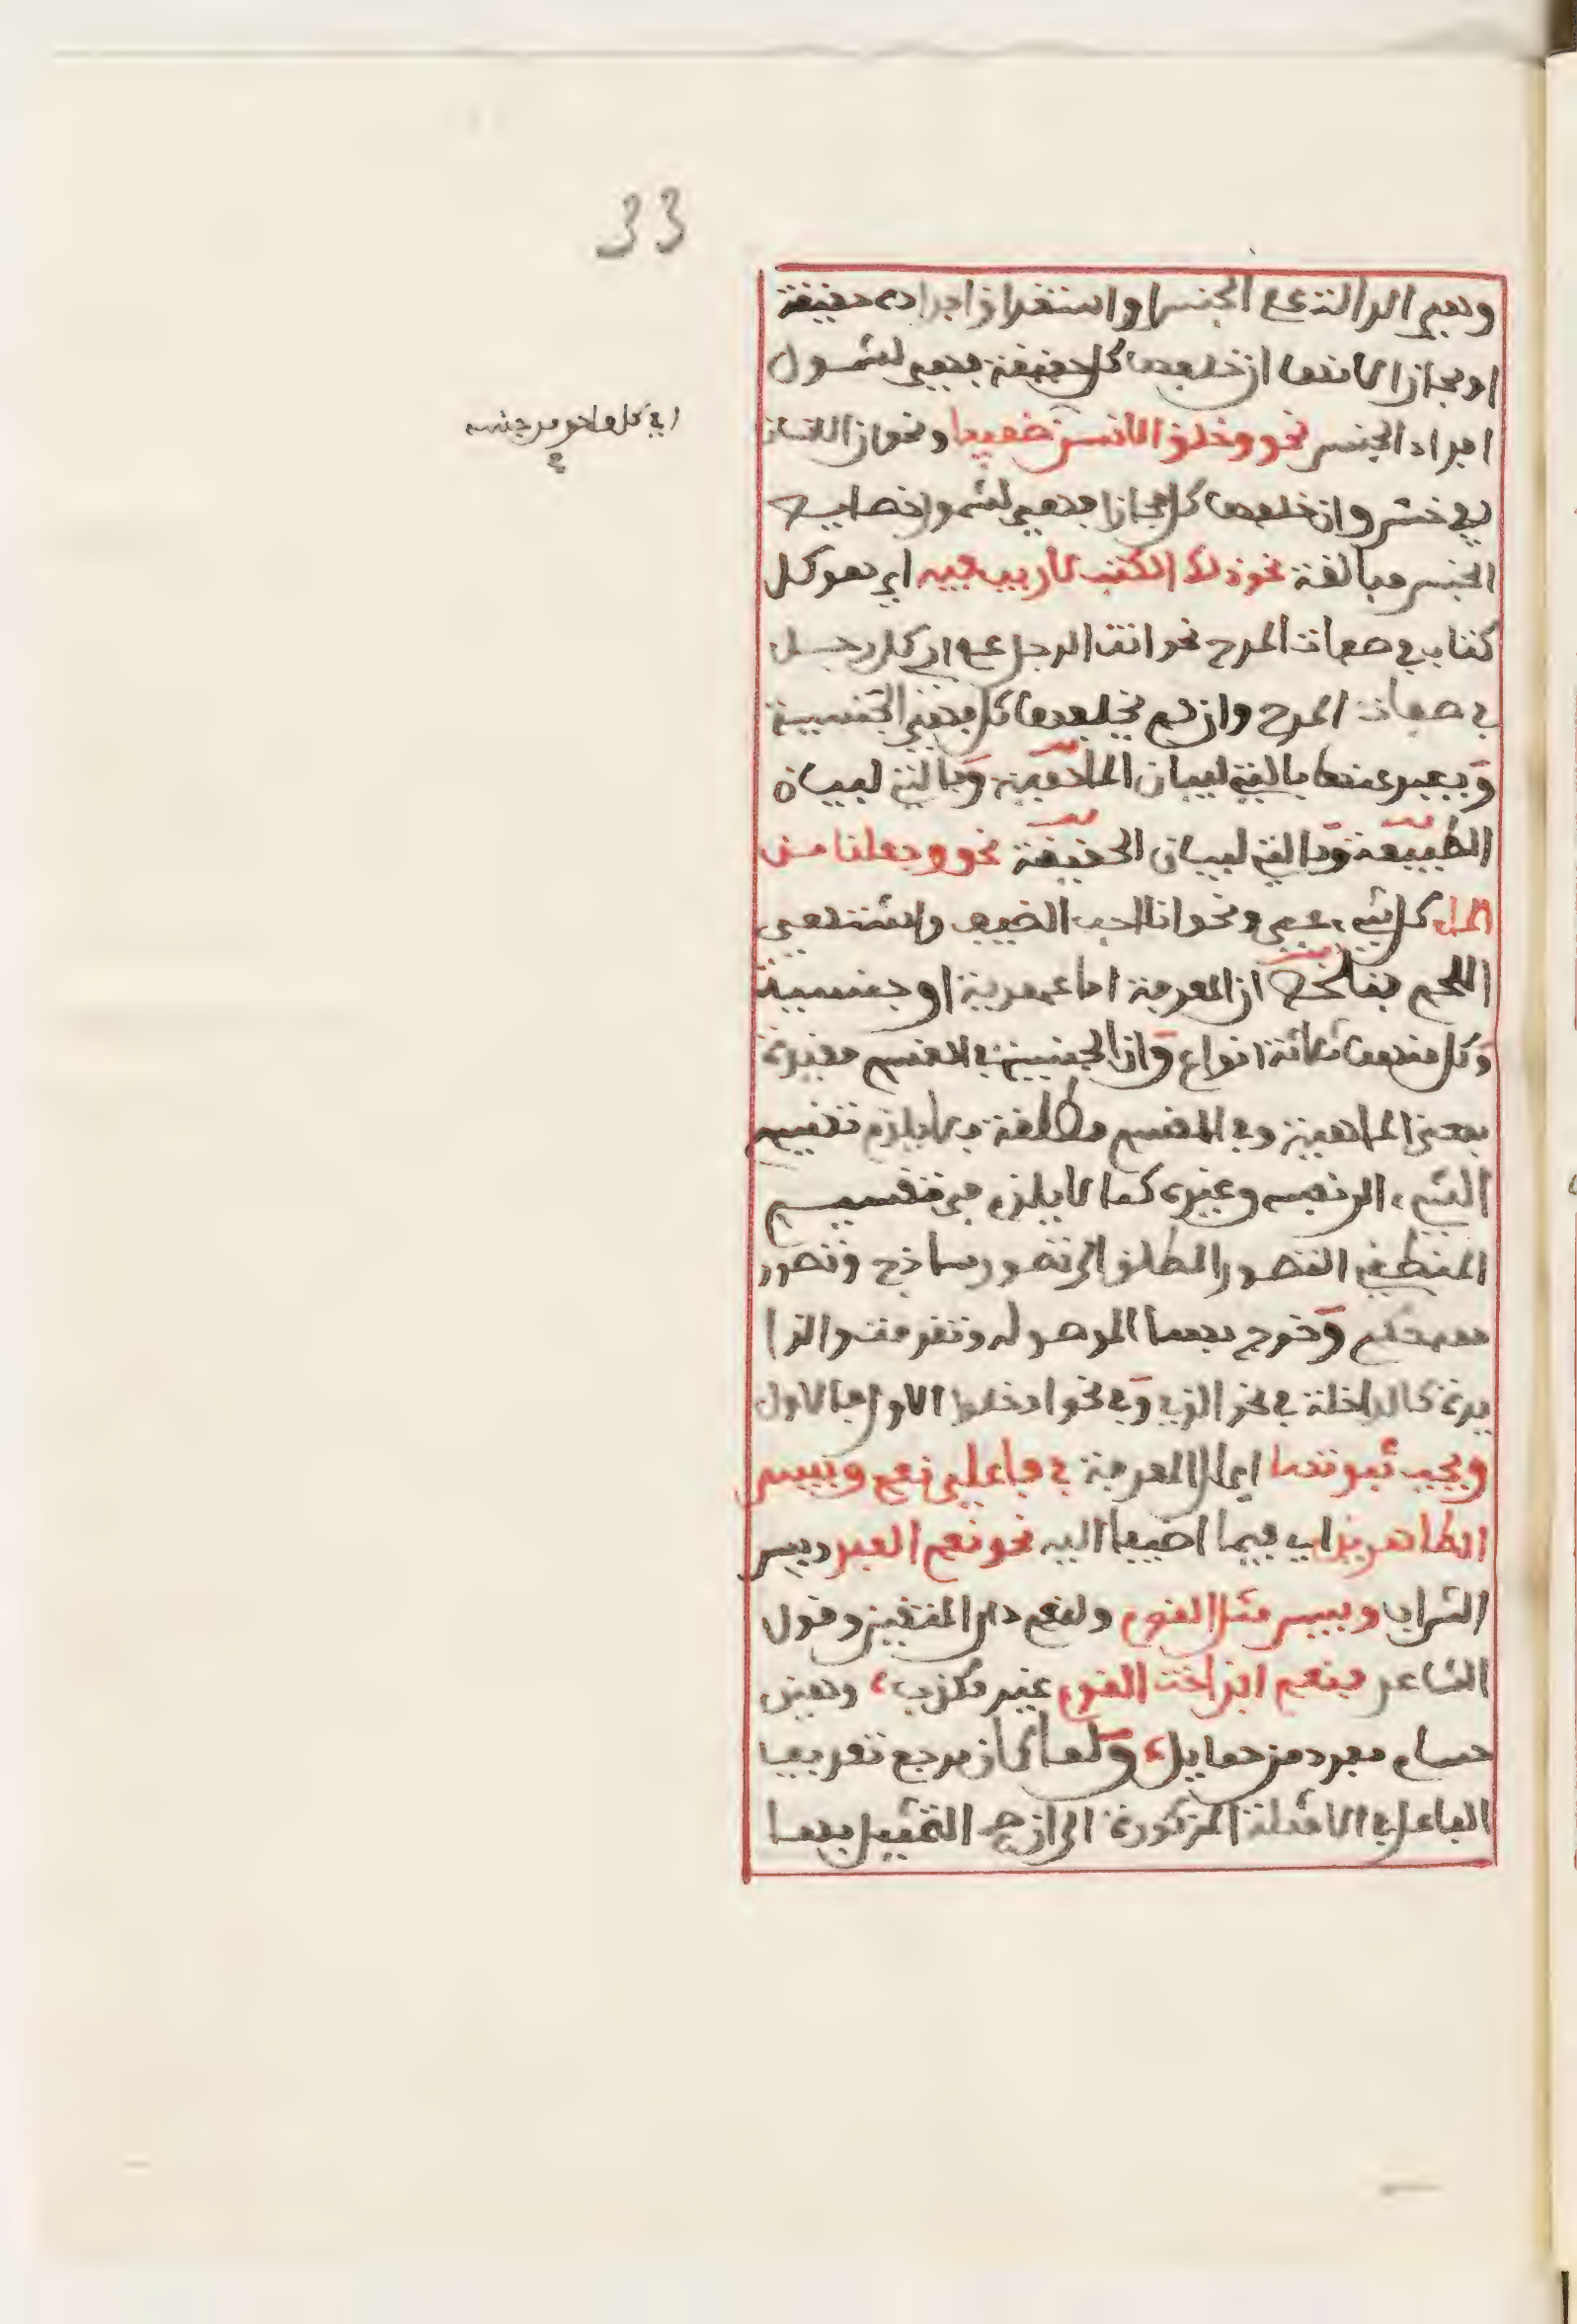 33
وهي الدالة على الجنس او استغراق افراده حقيقة
او مجازا لانها ان خلفها كل حقيقة فهي لشمول
افراد الجنس نحو وخلق الانسن ضعيفا ونحو ان الانسان
لفي خسر وان خلفها كل مجازا فهي لشمول خصايص
الجنس مبالغة نحو ذلك الكتب لا ريب فيه اي هو كل
كتاب في صفات المدح نحو انت الرجل علما اي كل رجل
في صفات المدح وان لم يخلفها كل فهي الجنسية
ويعبر عنها بالتي لبيان الماهية وبالتي لبيان
الطبيعة وبالتي لبيان الحقيقة نحو وجعلنا من
الماء كل شيء حي ونحو انا احب الضيف واشتهي
اللحم فتلخص ان المعرفة اما عهدية او جنسية
وكل منهما ثلاثة انواع وان الجنسية في الاقسم مقيدة
بمعنى الماهية وفي المقسم مطلقة فلا يلزم تقسيم
الشيء الى نفسه وغيره كما لا يلزم في تقسيم
المنطقي التصور المطلق الى تصور ساذج وتصور
معه حكم وخرج بهما الموصولة وتقدمت والزا
يدة كالداخلة في نحو الذي وفي نحو ادخلوا الاول فالاول
ويجب ثبوتها اي ال المعرفة في فاعلي نعم وبيس
الظاهرين او فيما اضيفا اليه نحو نعم العبد وبيس
الشراب وبيس مثل القوم ولنعم دار المتقين وقول
الشاعر فنعم ابن اخت القوم غير مكذب، زهير
حسام مفرد من حمايل، ولما كان مرجع تعريف
الفاعل في الامثلة المذكورة الى ال صح التمثيل بها
اي في كل واحد من جنسه